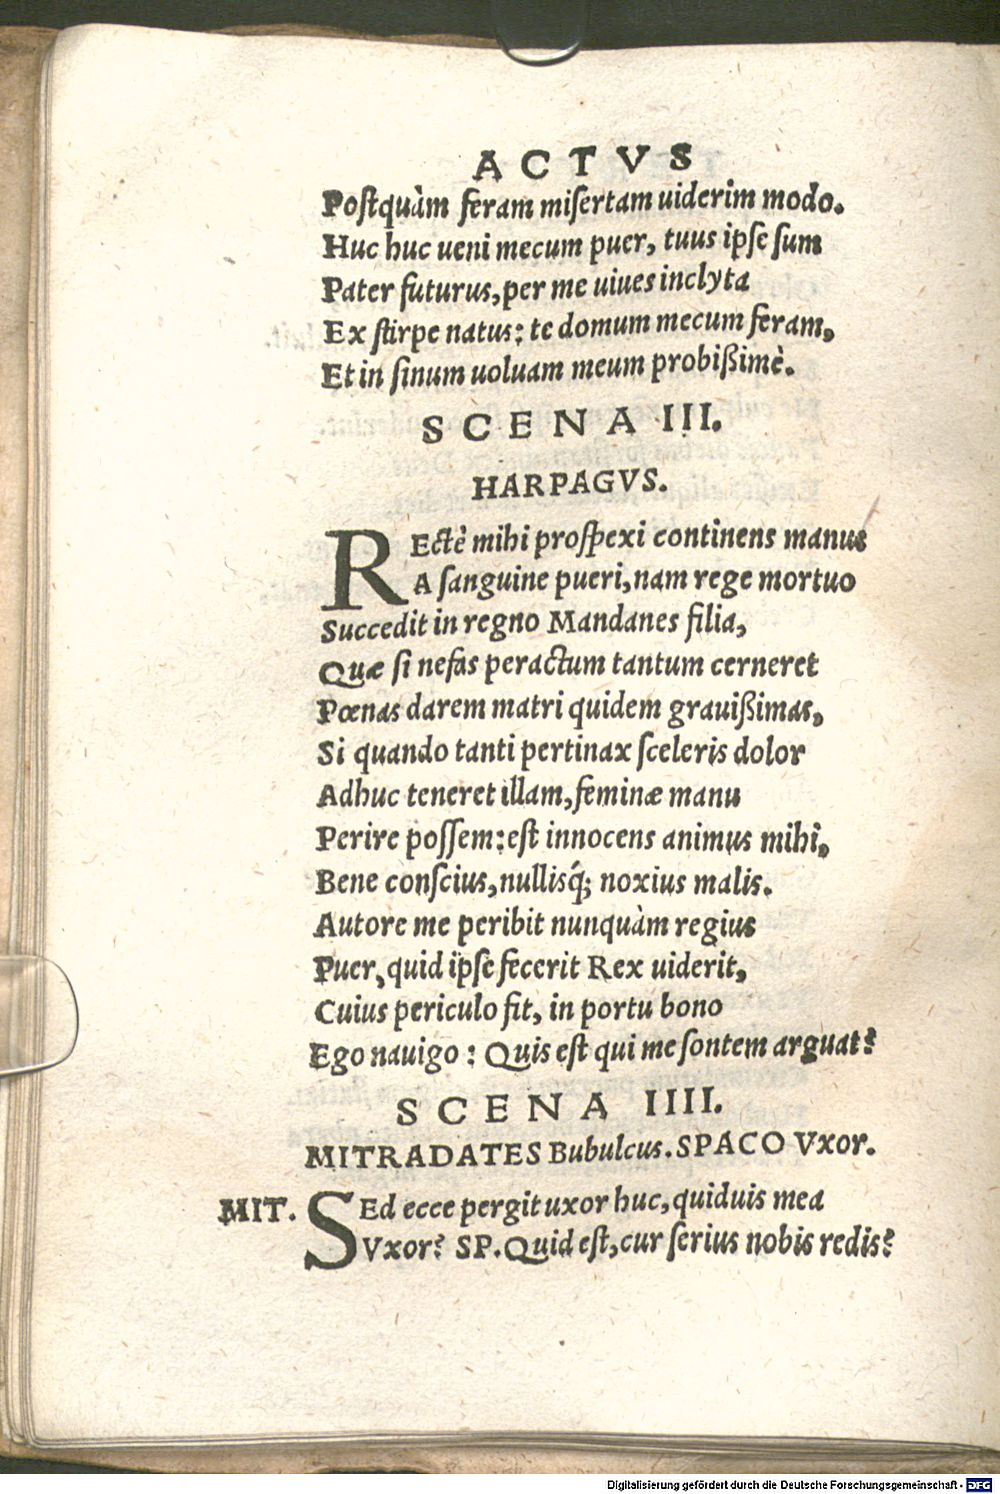 ACTVS
Postquàm feram misertam uiderim modo.
Huc huc ueni mecum puer, tuus ipse sum
Pater futurus, per me uiues inclyta
Ex stirpe natus: te domum mecum feram,
Et in sinum uoluam meum probißimè.
SCENA III.
HARPAGVS.
REctè mihi prospexi continens manus
A sanguine pueri, nam rege mortuo
Succedit in regno Mandanes filia,
Quæ si nefas peractum tantum cerneret
Pœnas darem matri quidem grauißimas,
Si quando tanti pertinax sceleris dolor
Adhuc teneret illam, feminæ manu
Perire possem: est innocens animus mihi,
Bene conscius, nullisq́; noxius malis.
Autore me peribit nunquàm regius
Puer, quid ipse fecerit Rex uiderit,
Cuius periculo fit, in portu bono
Ego nauigo: Quis est qui me sontem arguat?
SCENA IIII.
MITRADATES Bubulcus. SPACO Vxor.
MIT. SEd ecce pergit uxor huc, quiduis mea
Vxor? SP. Quid est, cur serius nobis redis?
Digitalisierung gefördert durch die Deutsche Forschungsgemeinschaft - DFG